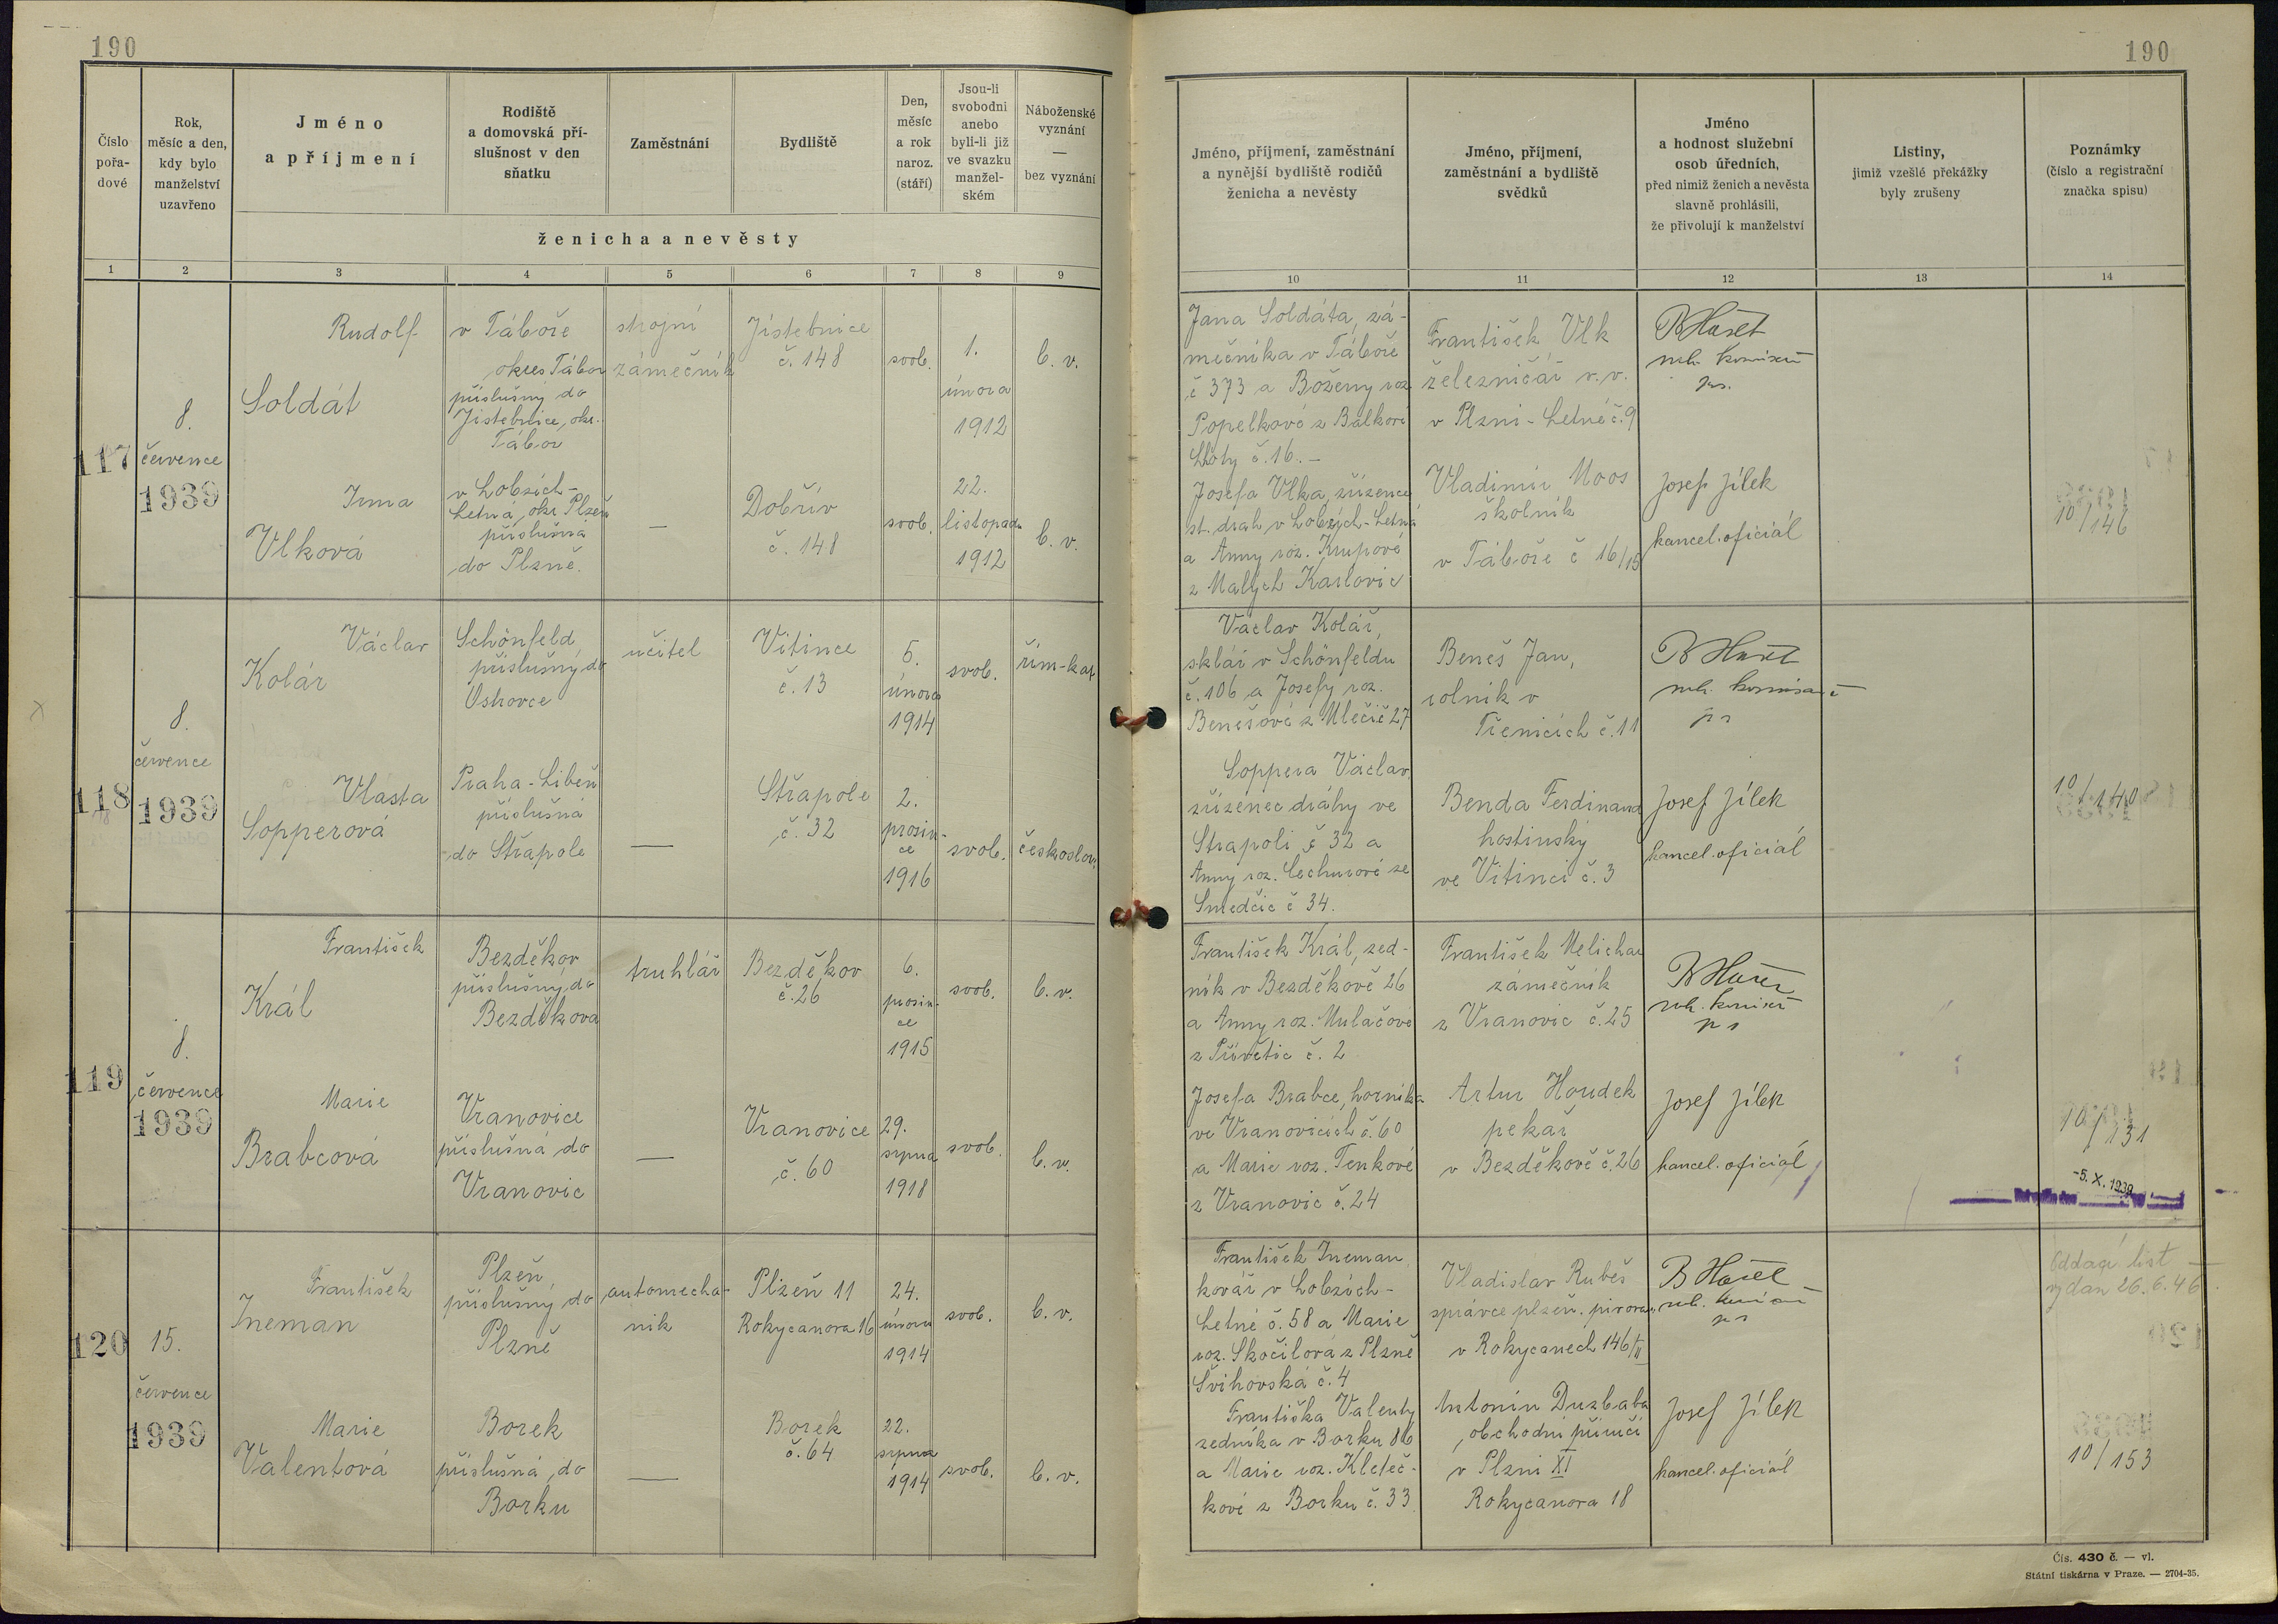 190
190
Číslo pořa-dové
Rok, měsíc a den, kdy bylo manželství uzavřeno
Jméno a příjmení
Rodiště a domovská pří-slušnost v den sňatku
Zaměstnání
Bydliště
Den, měsíc a rok naroz. (stáří)
Jsou-li svobodni anebo byli-li již ve svazku manžel-ském
Náboženské vyznání — bez vyznání
ženicha a nevěsty
1 2 3 4 5 6 7 8 9
Jméno, příjmení, zaměstnání a nynější bydliště rodičů ženicha a nevěsty
Jméno, příjmení, zaměstnání a bydliště svědků
Jméno a hodnost služební osob úředních, před nimiž ženich a nevěsta slavně prohlásili, že přivolují k manželství
Listiny, jimiž vzešlé překážky byly zrušeny
Poznámky (číslo a registrační značka spisu)
10 11 12 13 14
117
8.
července
1939
Rudolf
Soldát
v Táboře
okres Tábor
příslušný do
Jistebnice, okr.
Tábor
strojní
zámečník
Jistebnice
č. 148
svob.
1.
února
1912
b. v.
Irma
Vlková
v Lobzích-
Letná, okr. Plzeň
příslušná
do Plzně.
—
Dobřív
č. 148
svob.
22.
listopadu
1912
b. v.
Jana Soldáta, zá-
mečníka v Táboře
č 373 a Boženy roz.
Popelkové z Balkovi
Lhoty č. 16. –
Josefa Vlka, zřízence
st. drah v Lobzích-Letná
a Anny roz. Krupové
z Malých Karlovic
František Vlk
železničář v.v.
v Plzni-Letné č. 9
Vladimír Moos
školník
v Táboře č 16/15
Josef Jílek
kancel. oficiál
10/146
118
8.
července
1939
Václav
Kolár
Schönfeld
příslušný do
Ostrovce
učitel
Vitince
č. 13
5.
února
1914
svob.
řím-kat
Vlasta
Sopperová
Praha-Libeň
příslušná
do Střapole
—
Střapole
č. 32
2.
prosin-
ce
1916
svob.
českoslov.
Václav Kolář,
sklář v Schönfeldu
č. 106 a Josefy roz.
Benešové z Mlečič 27
Soppera Václav
zřízenec dráhy ve
Střapoli č 32 a
Anny roz. Cechurové ze
Smedčic č 34.
Beneš Jan,
rolník v
Třenicích č. 11
Benda Ferdinand
hostinský
ve Vitinci č. 3
Josef Jílek
kancel. oficiál
10/140
119
8.
července
1939
František
Král
Bezděkov
příslušný do
Bezděkova
truhlář
Bezděkov
č. 26
6.
prosin-
ce
1915
svob.
b. v.
Marie
Brabcová
Vranovice
příslušná do
Vranovic
—
Vranovice
č. 60
29.
srpna
1918
svob.
b. v.
František Král, zed-
ník v Bezděkově 26
a Anny roz. Mulačové
z Přívětic č. 2
Josefa Brabce, horníka
ve Vranovicích č. 60
a Marie roz. Tenkové
z Vranovic č. 24
František Melichar
zámečník
z Vranovic č. 25
Artur Houdek
pekař
v Bezděkově č. 26
Josef Jílek
kancel. oficiál
10/131
-5. X. 1939
120
15.
července
1939
František
Ineman
Plzeň,
příslušný do
Plzně
automecha-
nik
Plzeň 11
Rokycanova 16
24.
února
1914
svob.
b. v.
Marie
Valentová
Borek
příslušná do
Borku
—
Borek
č. 64
22.
srpna
1914
svob.
b. v.
František Ineman,
kovář v Lobzích-
Letné č. 58 a Marie
roz. Skočilová z Plzně
Švihovská č. 4
Františka Valenty
zedníka v Borku 86
a Marie roz. Kleteč-
kové z Borku č. 33
Vladislav Rubeš
správce plzeň. pivovaru
v Rokycanech 146/II
Antonín Duzbaba
obchodní příručí
v Plzni XI
Rokycanova 18
Josef Jílek
kancel. oficiál
Oddací list
vydan 26. 6. 46
10/153
Čís. 430 č. — vl.
Státní tiskárna v Praze. — 2704-35.